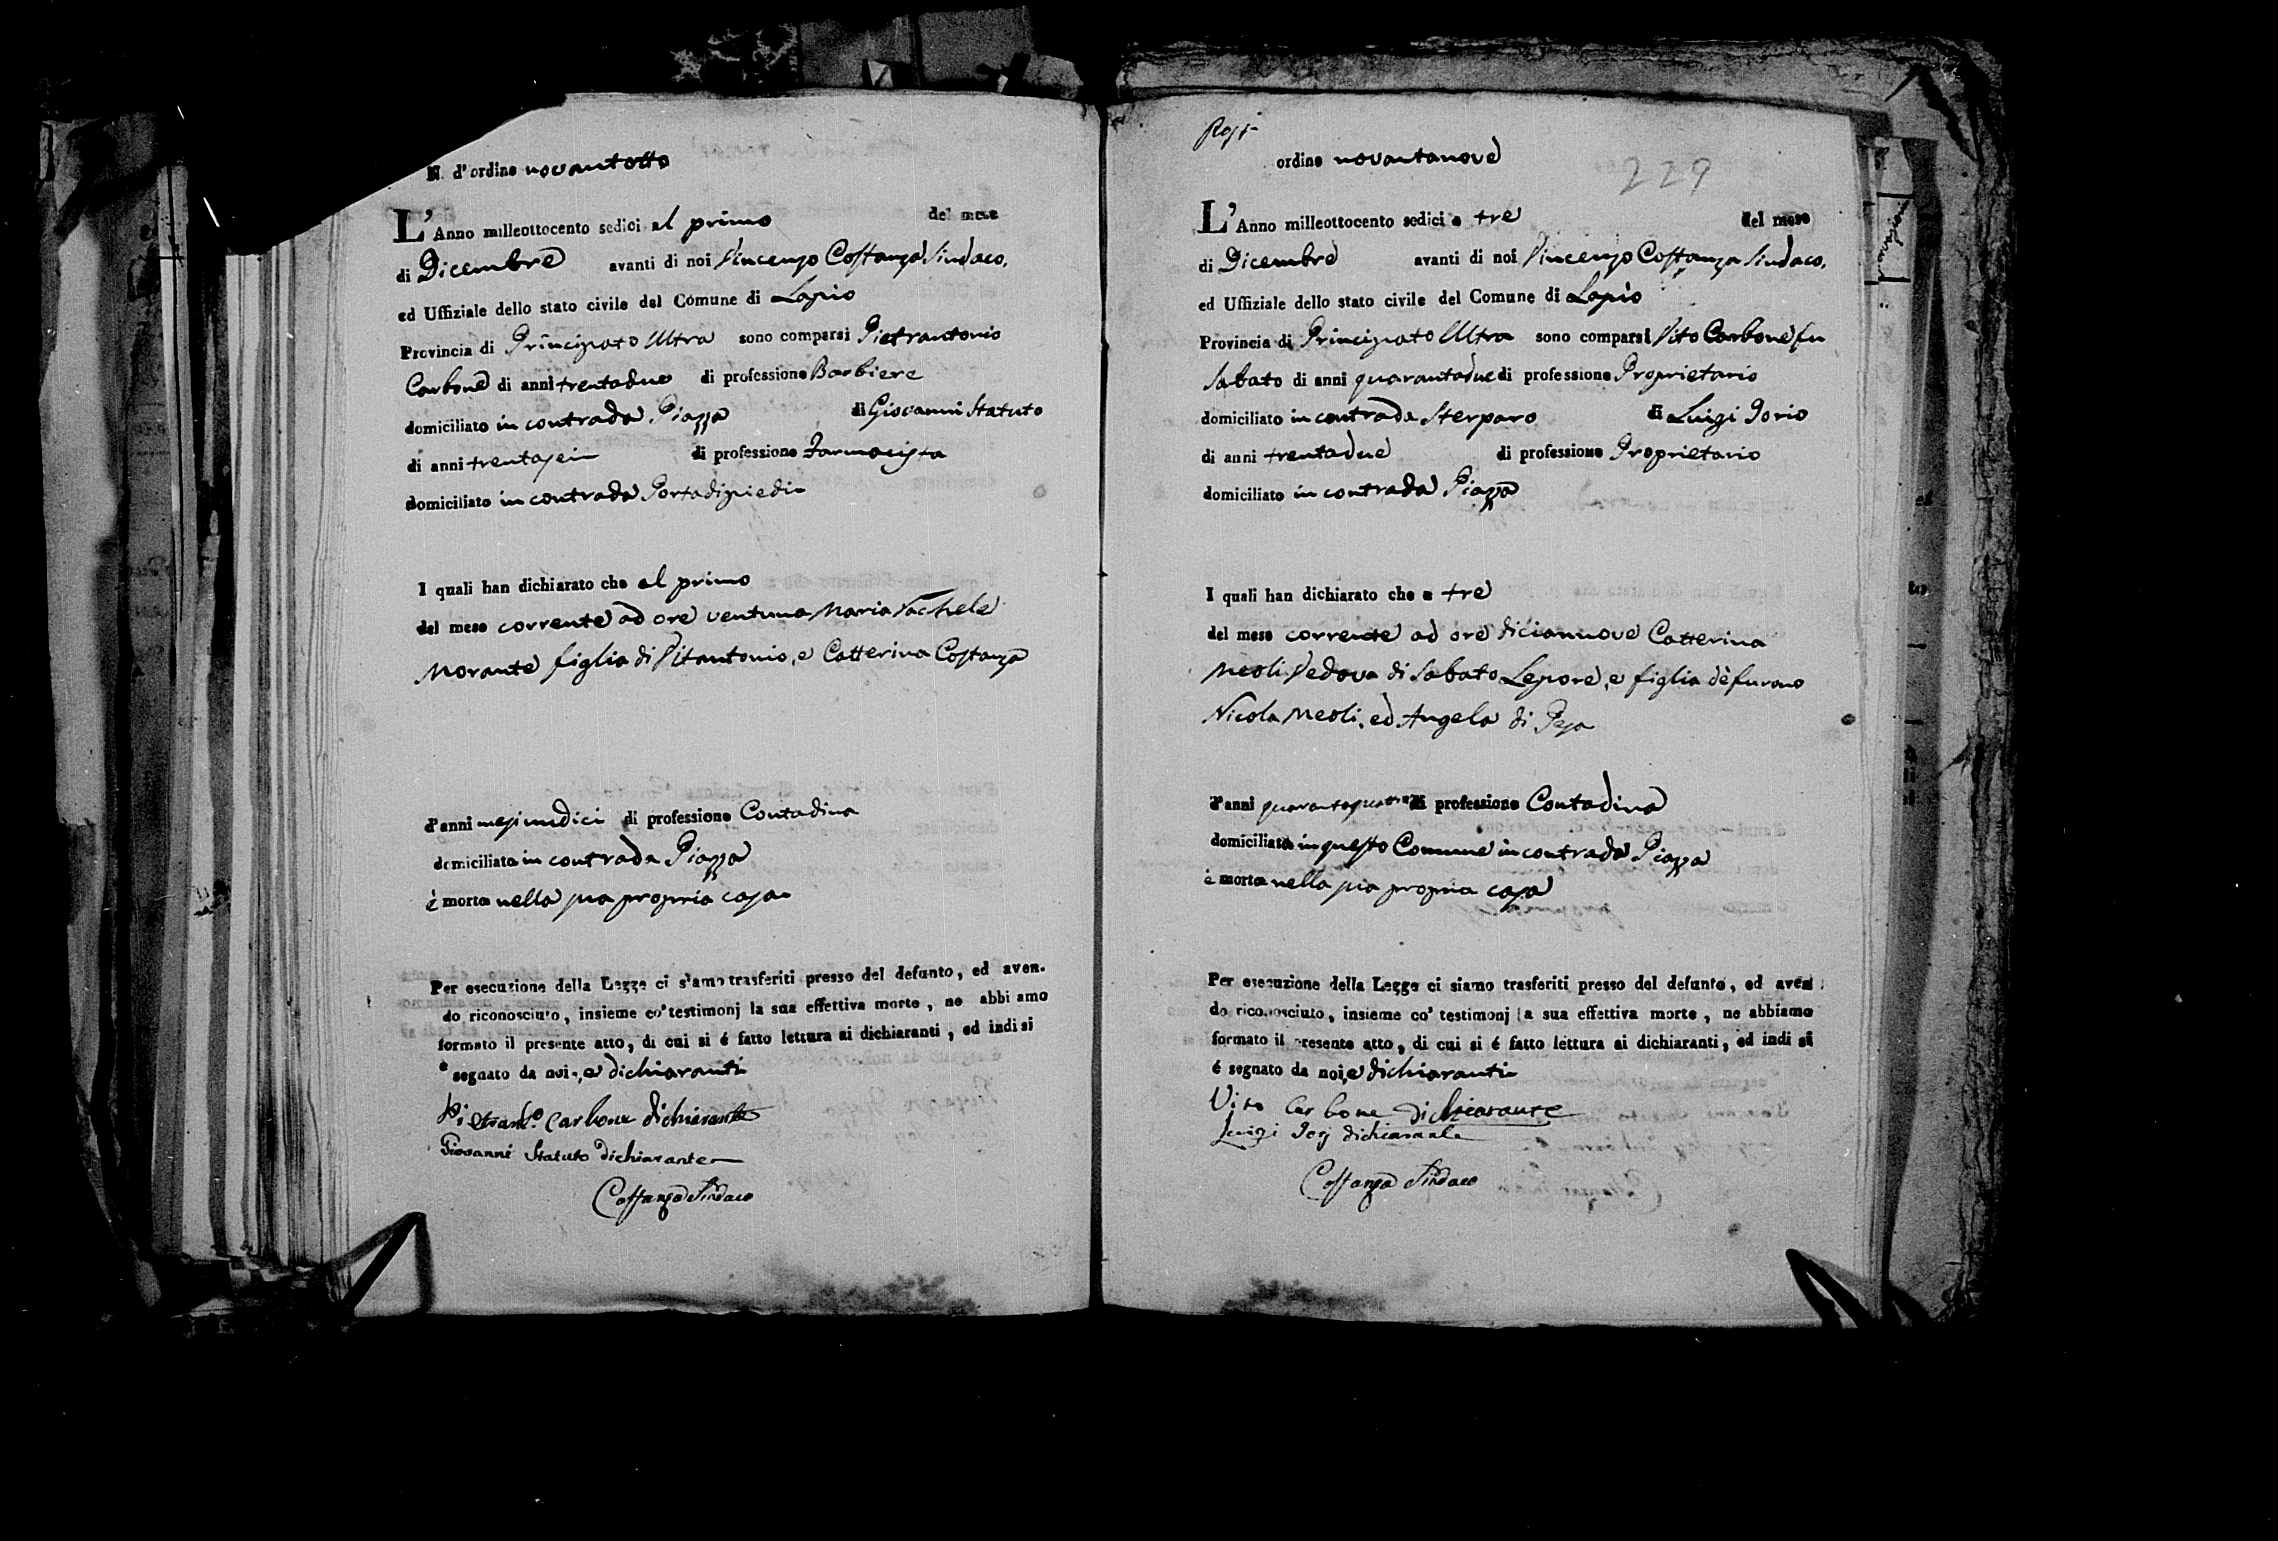 N. d'ordine novantotto
L'Anno milleottocento sedici al primo del mese
di Dicembre avanti di noi Vincenzo Costanza Sindaco,
ed Uffiziale dello stato civile del Comune di Lapio
Provincia di Principato Ultra sono comparsi Pietrantonio
Carbone di anni trentadue di professione Barbiere
domiciliato in contrada Piazza di Giovanni Statuto
di anni trentasei di professione Farmacista
domiciliato in contrada Portadipiedi
I quali han dichiarato che al primo
del mese corrente ad ore ventuna Maria Rachele
Morante figlia di Vitantonio, e Catterina Costanza
d'anni mesi undici di professione Contadina
domiciliata in contrada Piazza
è morta nella sua propria casa
Per esecuzione della Legge ci siamo trasferiti presso del defunto, ed aven-
do riconosciuto, insieme co' testimonj la sua effettiva morte, ne abbiamo
formato il presente atto, di cui si é fatto lettura ai dichiaranti, ed indi si
é segnato da noi, e dichiaranti
Pietrant.o Carbone dichiarante
Giovanni Statuto dichiarante
Costanza Sindaco
229
ordine novantanove
L'Anno milleottocento sedici a tre del mese
di Dicembre avanti di noi Vincenzo Costanza Sindaco,
ed Uffiziale dello stato civile del Comune di Lapio
Provincia di Principato Ultra sono comparsi Vito Carbone fu
Sabato di anni quarantadue di professione Proprietario
domiciliato in contrada Sterparo di Luigi Iorio
di anni trentadue di professione Proprietario
domiciliato in contrada Piazza
I quali han dichiarato che a tre
del mese corrente ad ore diciannove Catterina
Meoli Vedova di Sabato Lepore, e figlia dè furono
Nicola Meoli, ed Angela di Pesa
d'anni quarantaquattro di professione Contadina
domiciliata in questo Comune in contrada Piazza
è morta nella sua propria casa
Per esecuzione della Legge ci siamo trasferiti presso del defunto, ed aven
do riconosciuto, insieme co' testimonj la sua effettiva morte, ne abbiamo
formato il presente atto, di cui si é fatto lettura ai dichiaranti, ed indi si
é segnato da noi, e dichiaranti
Vito Carbone dichiarante
Luigi Iorj dichiarante
Costanza Sindaco